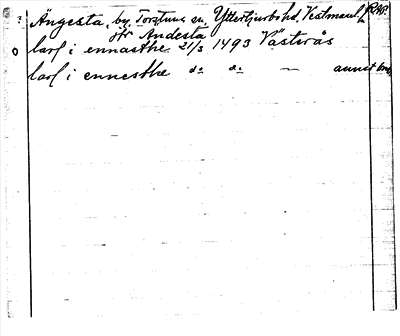 Ängesta, by, Tortuna sn, Yttertjurbo hd, Vestmanl. RAP.
jfr Andesta
larf i ennasthe 21/3 1493 Västerås
larf i ennesthe do do — annat brev